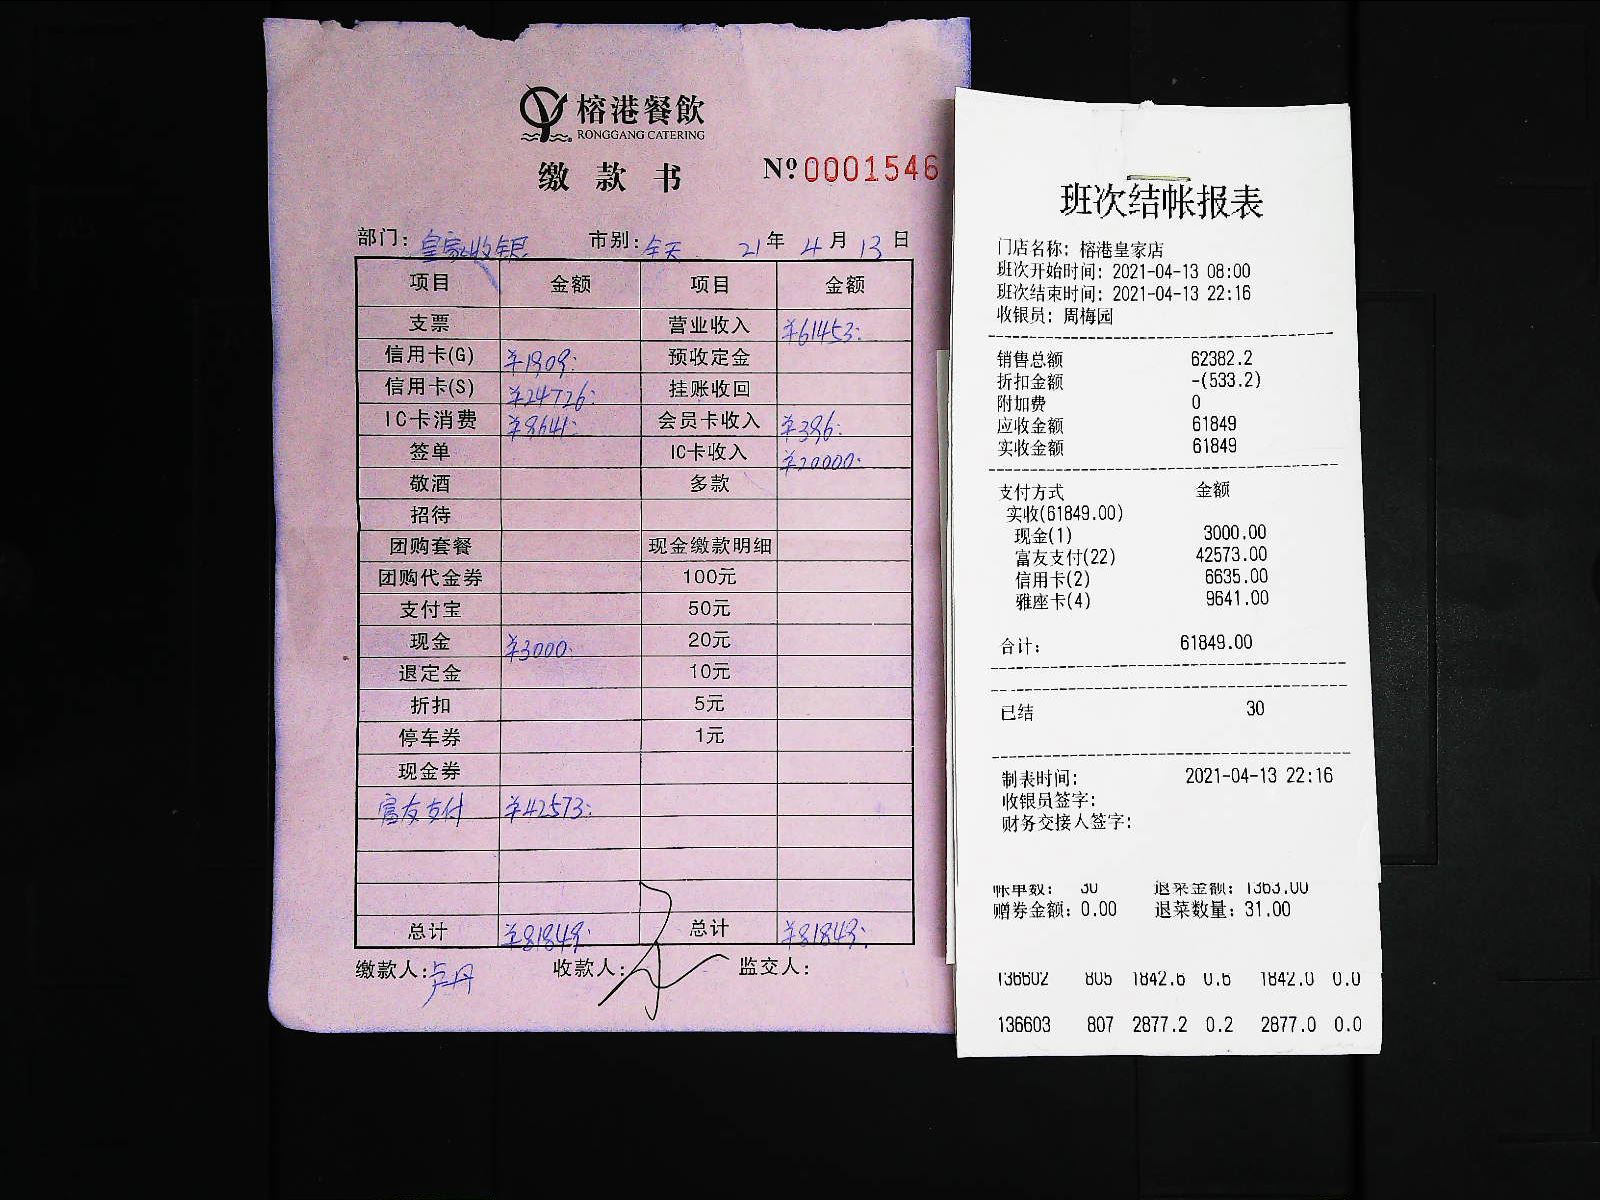 榕港餐飲
RONGGANG CATERING
缴款书 № 0001546
部门：皇家收银 市别：全天 21年4月13日
项目 金额 项目 金额
支票 营业收入 ¥61453:
信用卡(G) ¥1909: 预收定金
信用卡(S) ¥24726: 挂账收回
IC卡消费 ¥9641: 会员卡收入 ¥396:
签单 IC卡收入 ¥20000:
敬酒 多款
招待
团购套餐 现金缴款明细
团购代金券 100元
支付宝 50元
现金 ¥3000: 20元
退定金 10元
折扣 5元
停车券 1元
现金券
富友支付 ¥42573:
总计 ¥81849: 总计 ¥81849:
缴款人：卢丹 收款人： 监交人：
班次结帐报表
门店名称：榕港皇家店
班次开始时间：2021-04-13 08:00
班次结束时间：2021-04-13 22:16
收银员：周梅园
销售总额 62382.2
折扣金额 -(533.2)
附加费 0
应收金额 61849
实收金额 61849
支付方式 金额
实收(61849.00)
现金(1) 3000.00
富友支付(22) 42573.00
信用卡(2) 6635.00
雅座卡(4) 9641.00
合计： 61849.00
已结 30
制表时间： 2021-04-13 22:16
收银员签字：
财务交接人签字：
帐单数： 30 退菜金额：1363.00
赠券金额：0.00 退菜数量：31.00
136602 805 1842.6 0.6 1842.0 0.0
136603 807 2877.2 0.2 2877.0 0.0